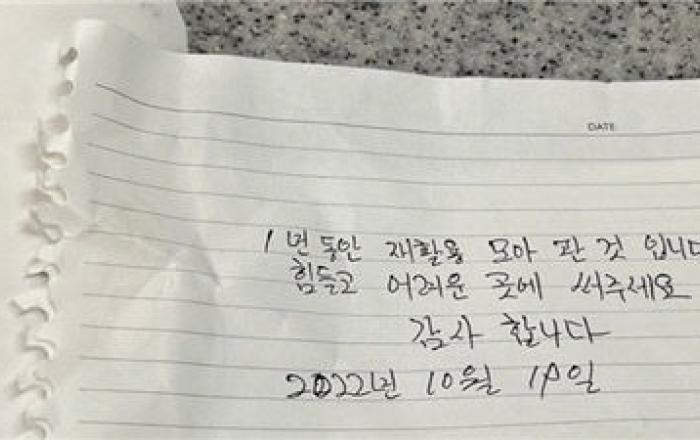 DATE
1년 동안 재활용 모아 판 것 입니다
힘들고 어려운 곳에 써주세요
감사 합니다
2022년 10월 19일